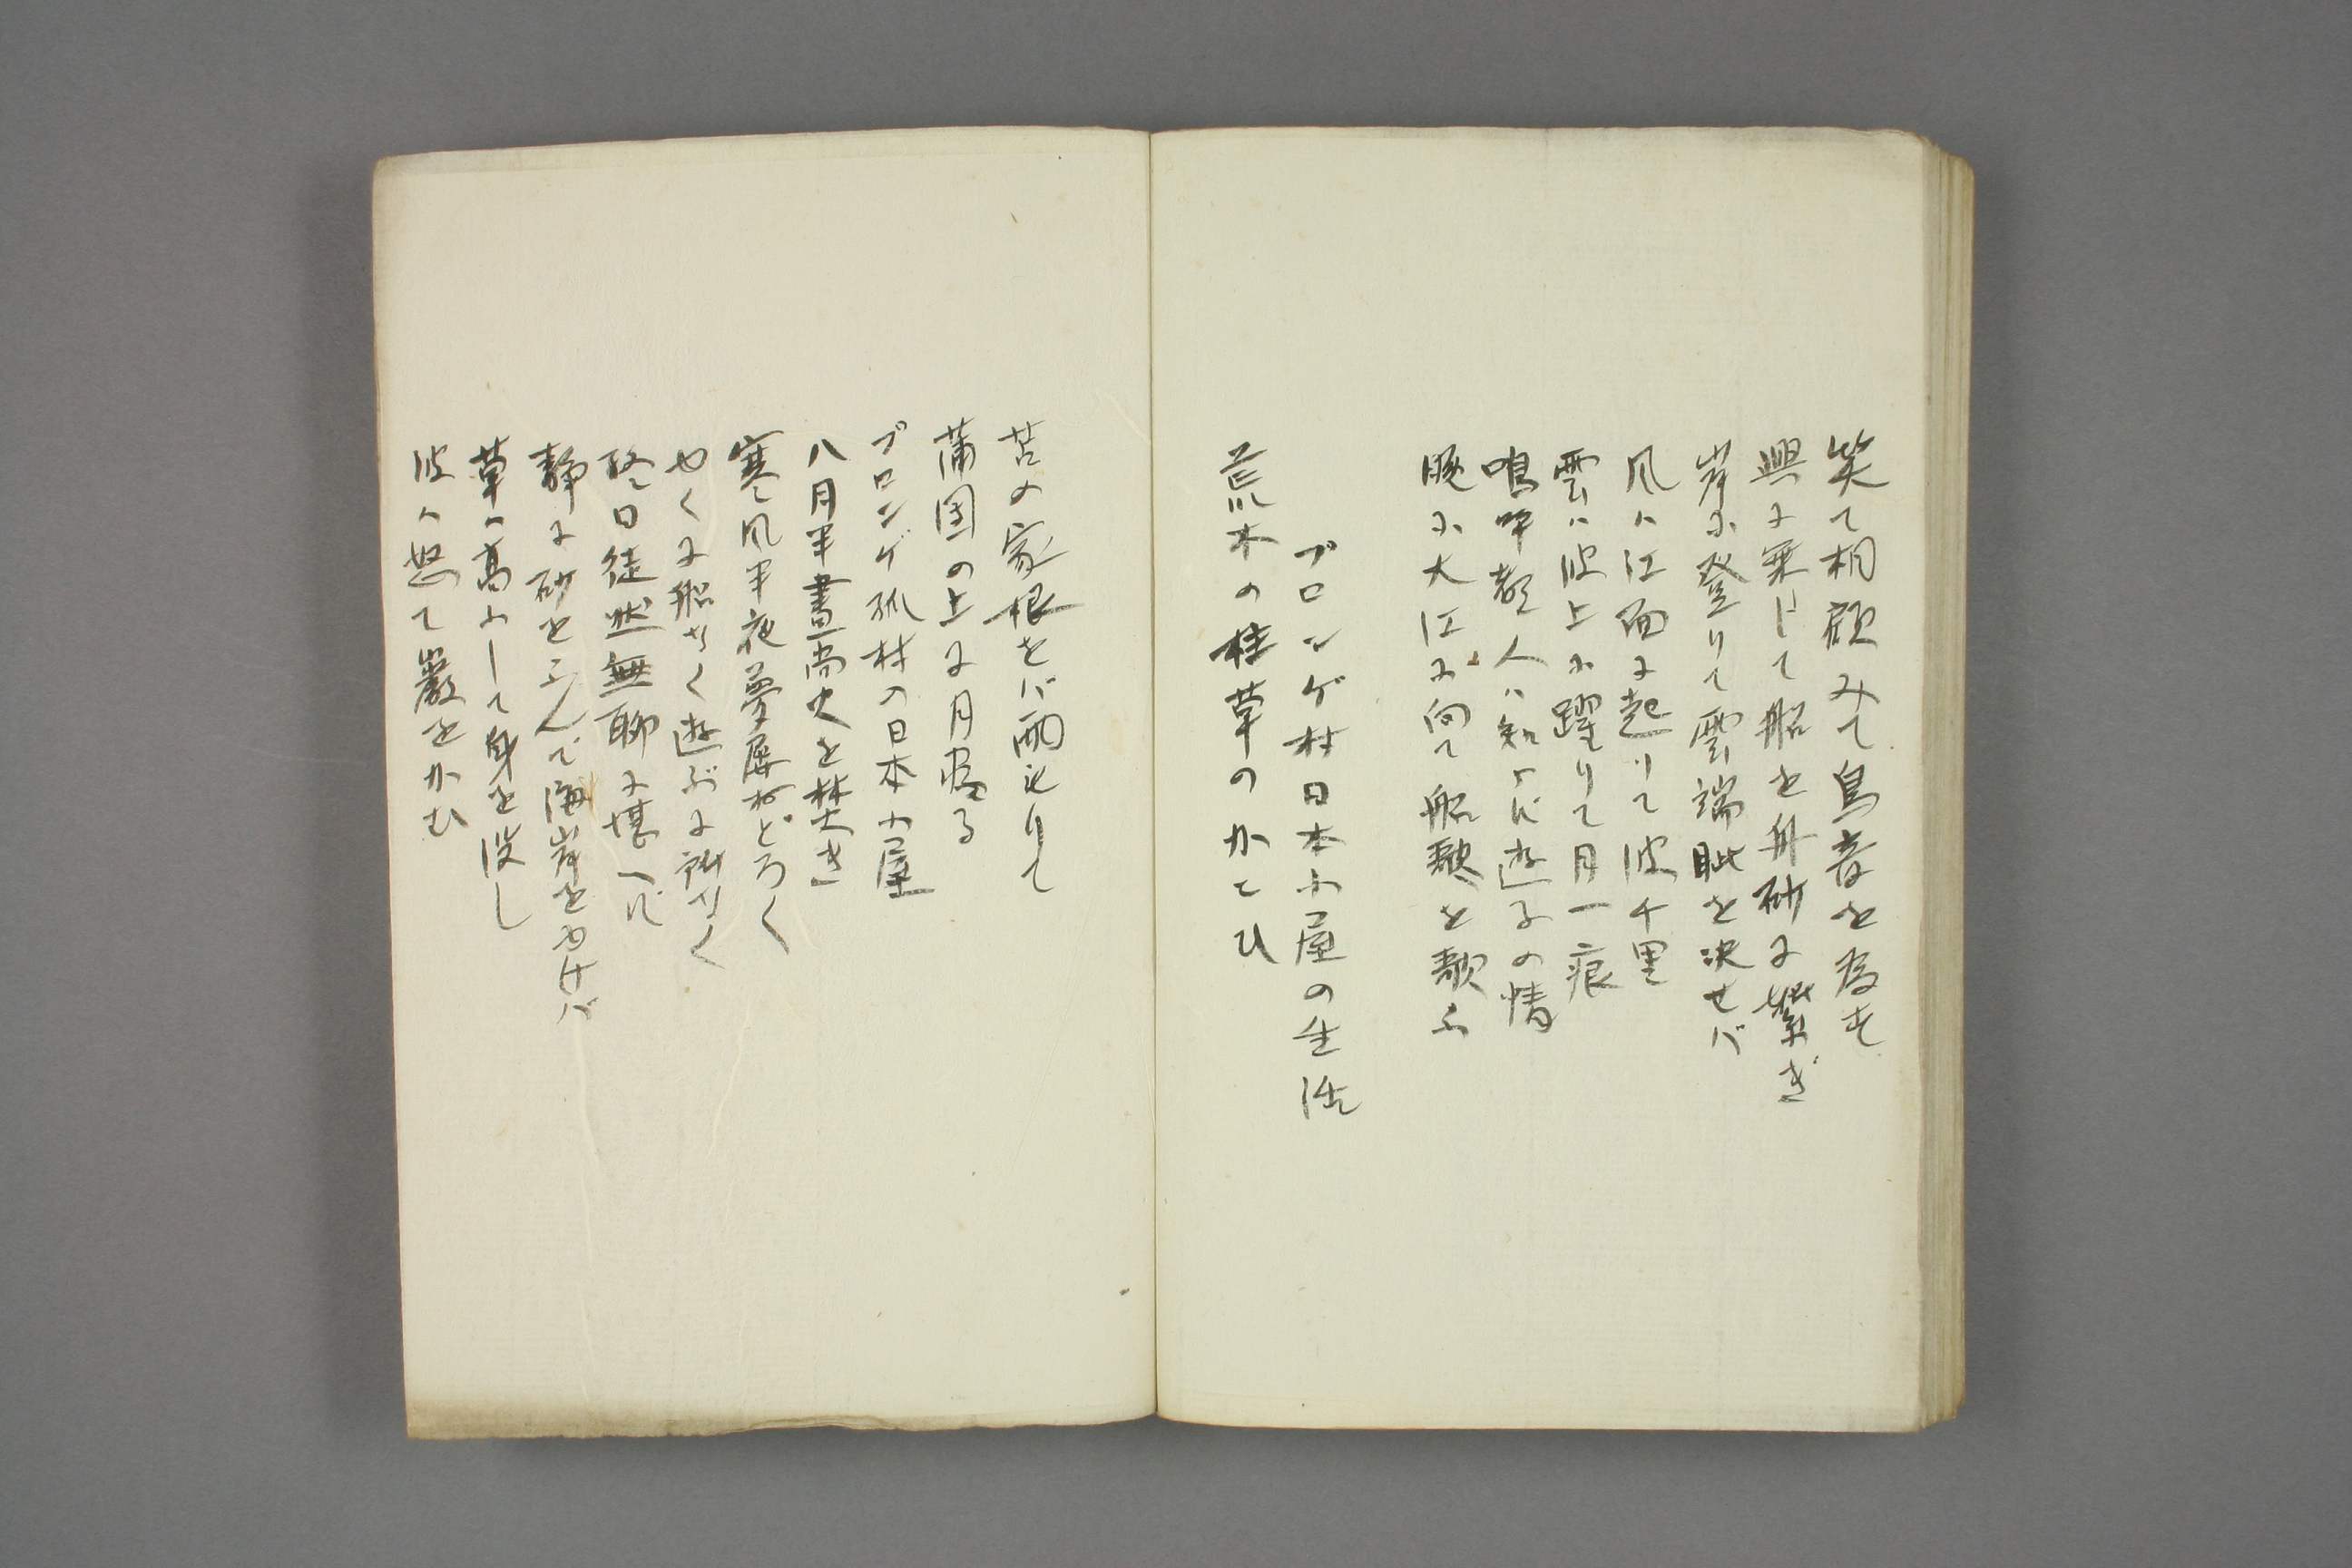 笑て相顧みて鳥音を為す
興に乗じて船を舟砂に繋ぎ
岸に登りて雲端眦を決せバ
風ハ江面に起りて波千里
雲ハ波上に躍りて月一痕
嗚呼都人ハ知らず遊子の情
腕に大江に向て船歌を歌ふ
ブロンゲ村日本小屋の生活
荒木の柱草のかこひ
苫の家根をバ雨もりて
蒲団の上に月宿る
ブロンゲ孤村の日本小屋
八月半晝尚火を焚き
寒風半夜夢屡おどろく
ゆくに船なく遊ぶに所なく
終日徒然無聊に堪へず
静に砂をふんで海岸をゆけバ
草ハ高ふして身を没し
波ハ怒て巖をかむ